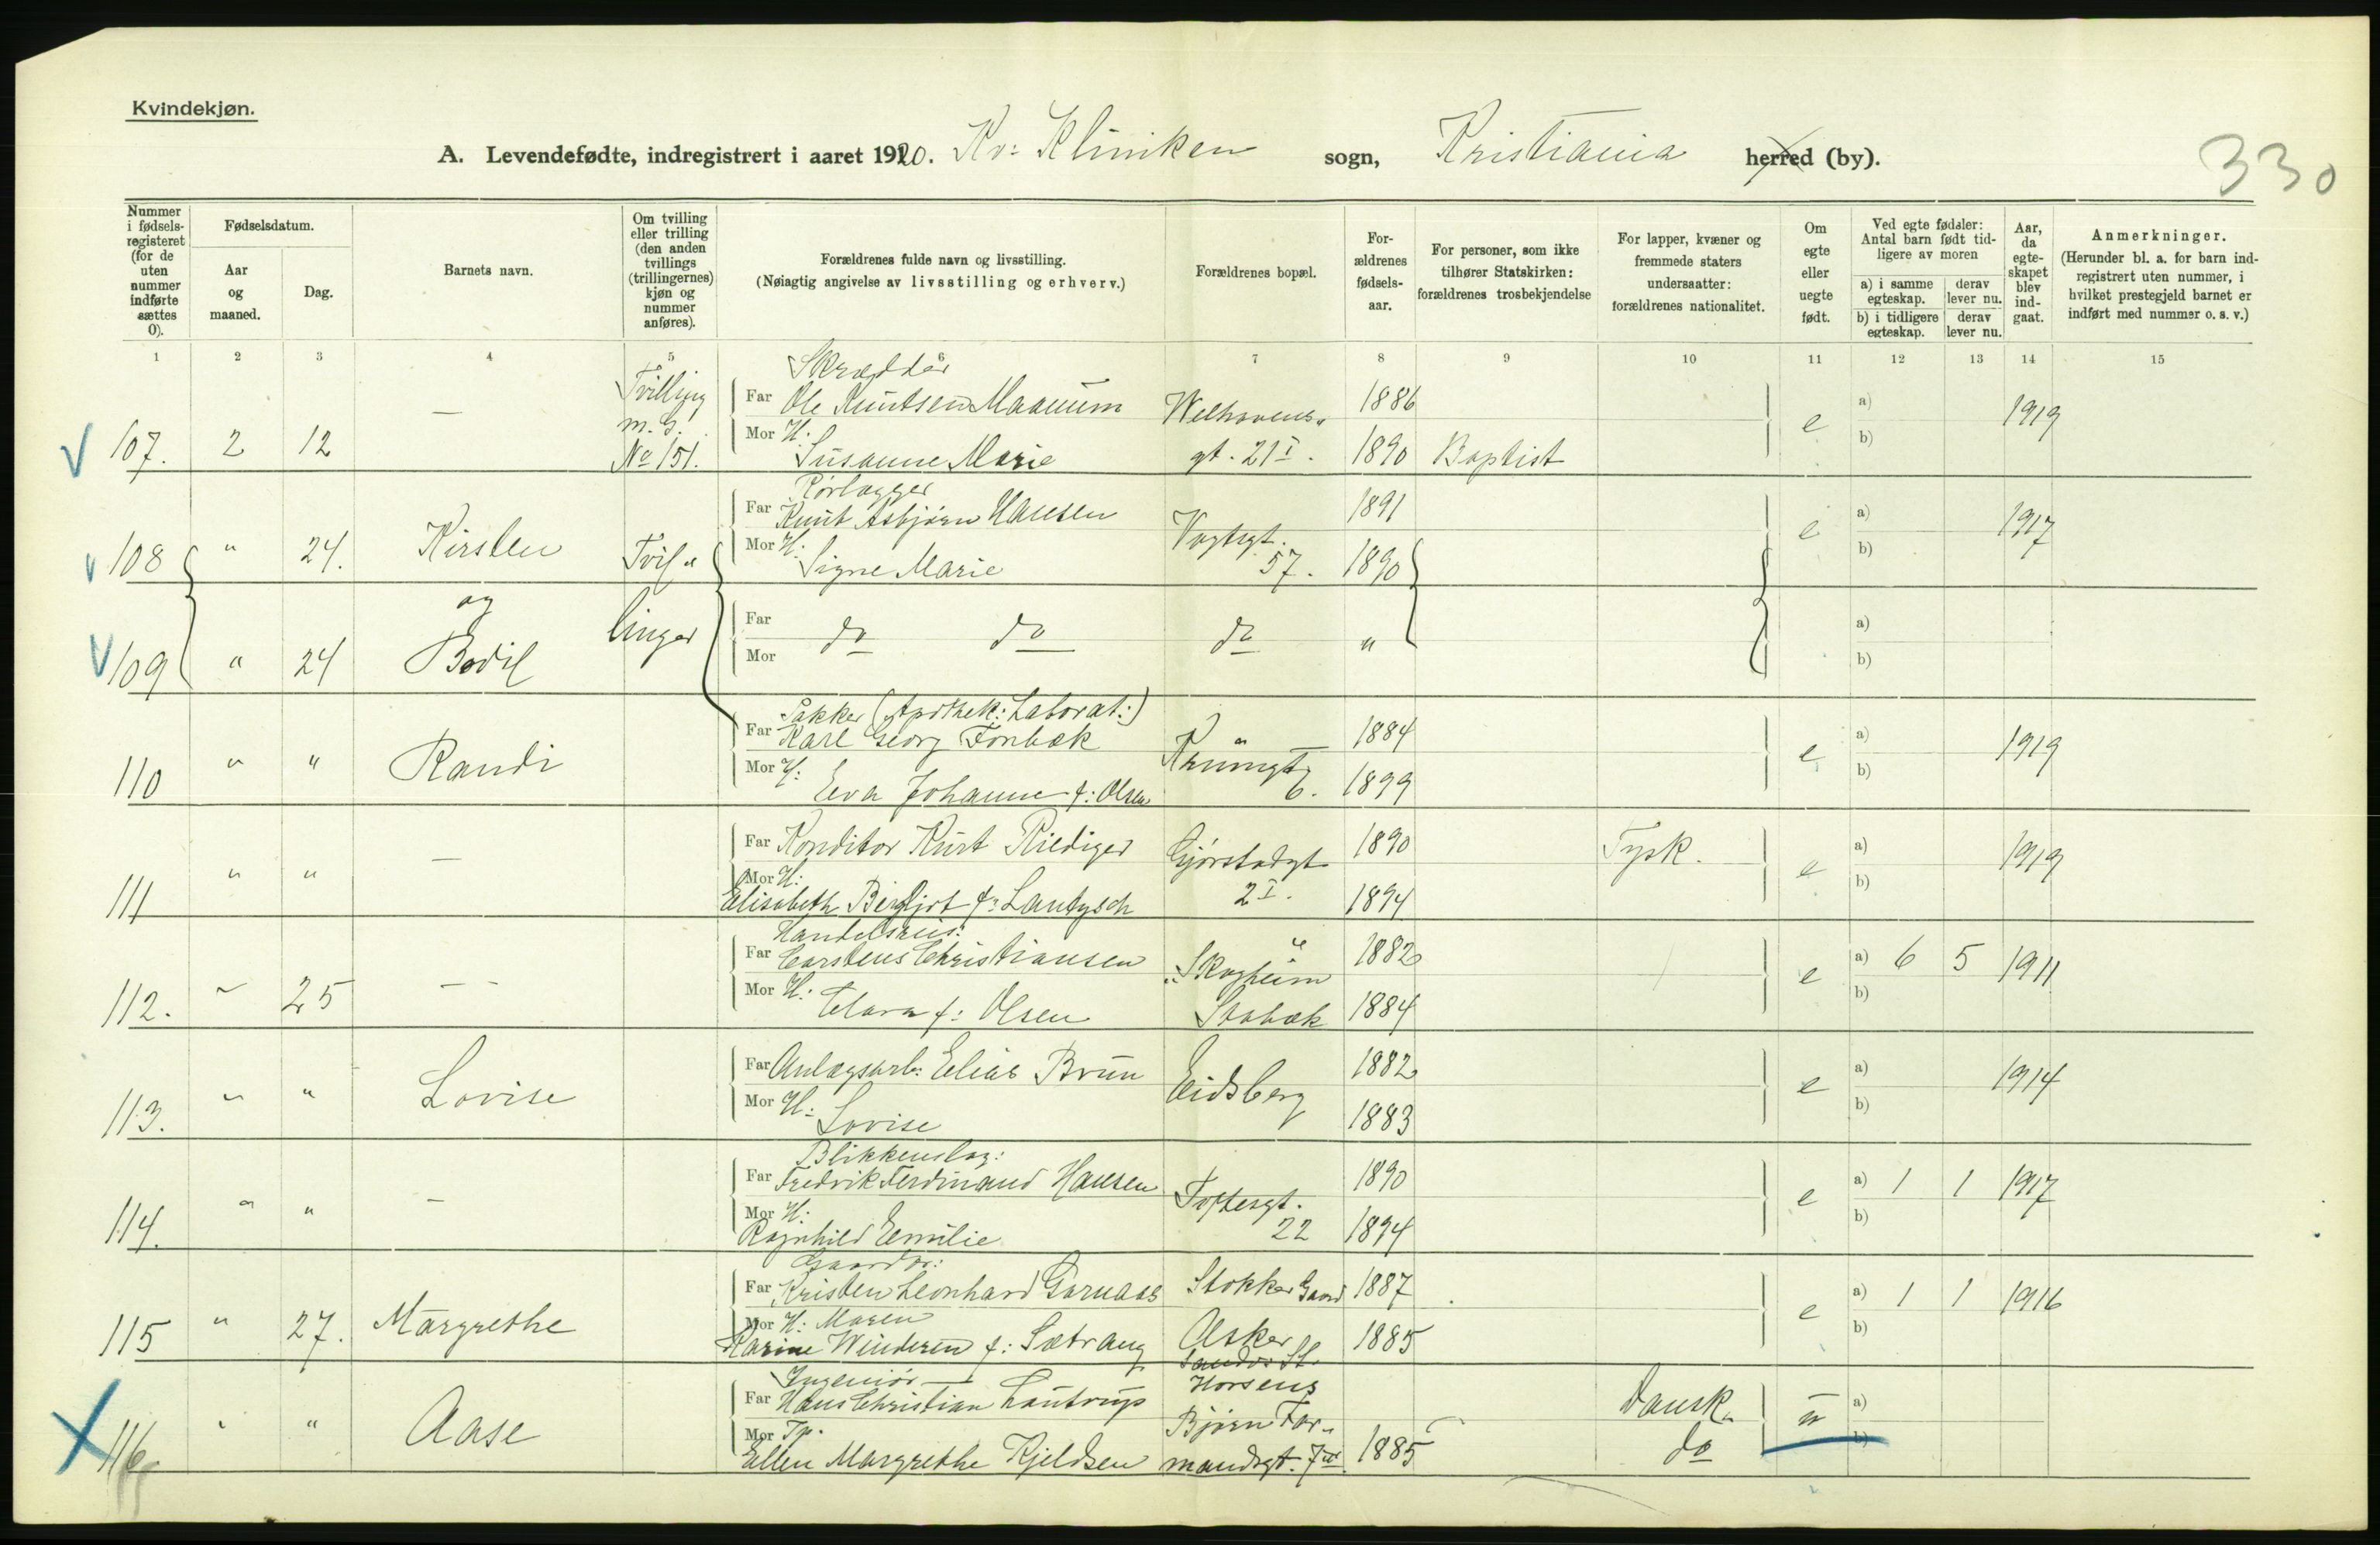 Kvindekjøn.
A. Levendefødte, indregistrert i aaret 1920. Kv: Kliniken sogn, Kristiania herred (by).
330
Nummer i fødsels-registeret (for de uten nummer indførte sættes 0).
Fødselsdatum.
Aar og maaned.
Dag.
Barnets navn.
Om tvilling eller trilling (den anden tvillings (trillingernes) kjøn og nummer anføres).
Forældrenes fulde navn og livsstilling.
(Nøiagtig angivelse av livsstilling og erhverv.)
Forældrenes bopæl.
For-ældrenes fødsels-aar.
For personer, som ikke tilhører Statskirken: forældrenes trosbekjendelse
For lapper, kvæner og fremmede staters undersaatter: forældrenes nationalitet.
Om egte eller uegte født.
Ved egte fødsler: Antal barn født tid-ligere av moren
a) i samme egteskap. derav lever nu.
b) i tidligere egteskap. derav lever nu.
Aar, da egte-skapet blev ind-gaat.
Anmerkninger.
(Herunder bl. a. for barn ind-registrert uten nummer, i hvilket prestegjeld barnet er indført med nummer o. s. v.)
1 2 3 4 5 6 7 8 9 10 11 12 13 14 15
Skrædder
Tvilling Far Ole Knutsen Maanum Welhavens" 1886 a) 1919
m. G. Mor H: e b)
107. 2 12 — No 151. Susanne Marie gt. 21 I. 1890 Baptist
Rørlægger
Far Knut Asbjørn Hansen Vogtsgt. 1891 a) 1917
108 " 24. Kirsten Tvil" Mor H: Signe Marie 57. 1890 e b)
og linger Far do do do " a)
109 " 24 Bodil Mor b)
Pakker (Apothek: Laborat:)
Far Karl Georg Fonbæk 1884 a) 1919
110 " " Randi Mor H: Eva Johanne f: Olsen 6. 1899 e b)
Far Konditor Kurt Riediger 1890 Tysk. a) 1919
111 " " — Mor H: Elisabeth Bergljot f: 2 I. 1894 e b)
Far Carstens Christiansen "Skogheim" 1882 a) 6 5 1911
112. " 25 — Mor H: Clara f: Olsen Stabæk 1884 e b)
Far Anlægsarb: Elias Brun Eidsberg 1882 a) 1914
113. " " Lovise Mor H: Lovise 1883 e b)
Blikkenslag:
Far Fredrik Ferdinand Hansen Toftesgt. 1890 a) 1 1 1917
114. " " — Mor H: Ragnhild Emilie 22 1894 e b)
Gaardbr:
Far Kristen Leonhard Garnaas Stokker Gaard 1887 a) 1 1 1916
115 " 27. Margrethe Mor H: Maren Karine Winderen f: Sætrang Asker 1885 e b)
Sandvs St.
Ingeniør Horsens
Far Hans Christian Lautrup Dansk. u a)
116 " " Aase Mor Tp. Ellen Margrethe Kjeldsen Bjørn Far-mandsgt. 7 III. 1885 do b)